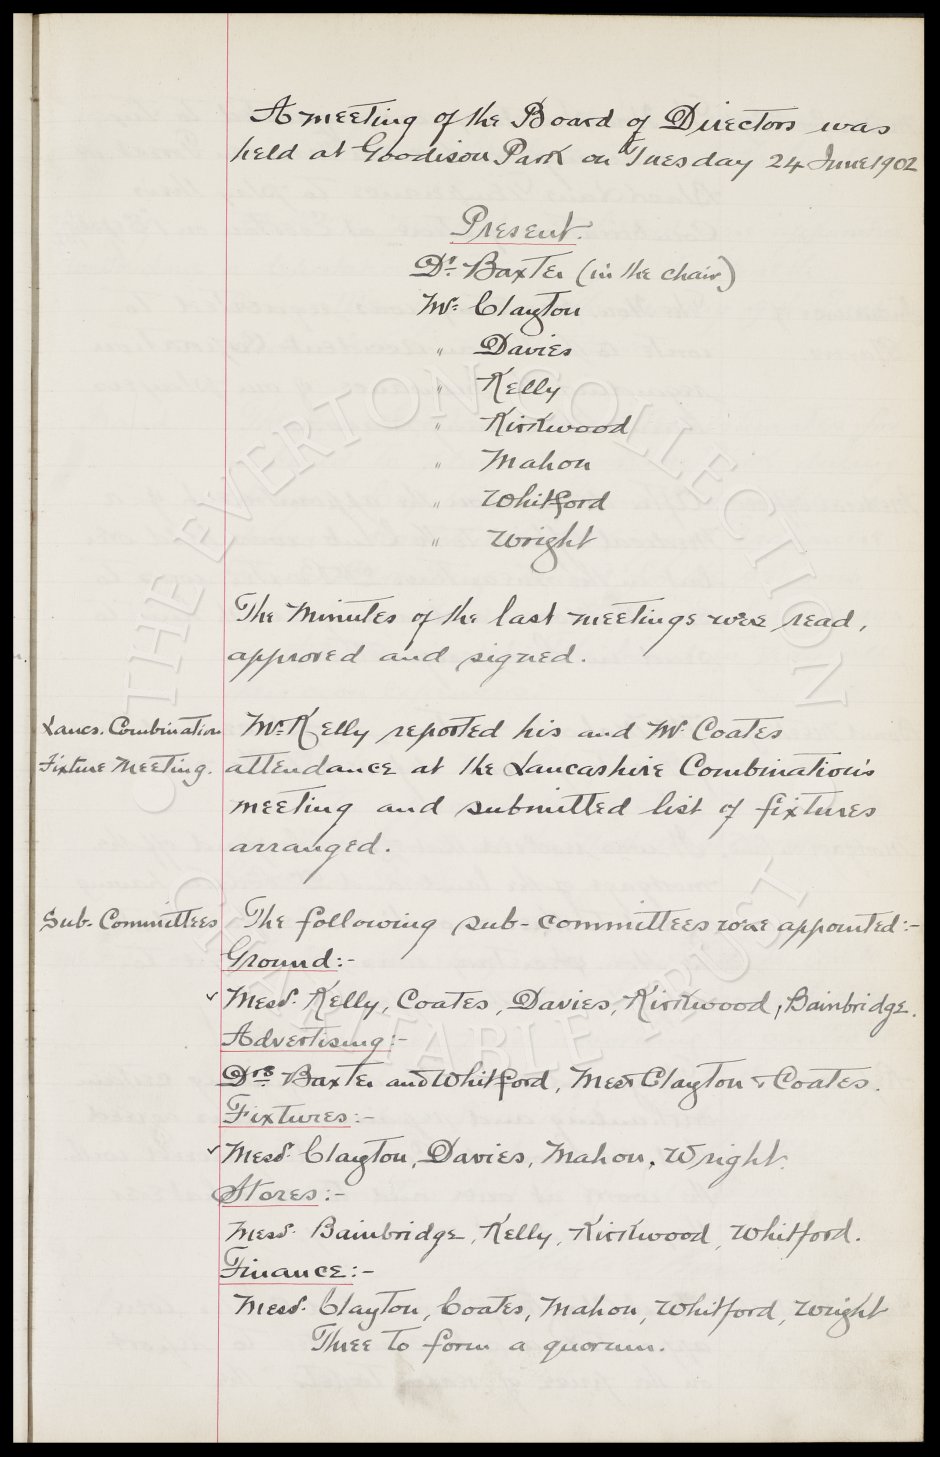 A meeting of the Board of Directors was
held at Goodison Park on Tuesday 24 June 1902
Present.
Dr. Baxter (in the chair)
Mr. Clayton
" Davies
" Kelly
" Kirkwood
" Mahon
" Whitford
" Wright
The Minutes of the last meetings were read,
approved and signed.
Lancs. Combination
Fixture Meeting.
Mr. Kelly reported his and Mr Coates
attendance at the Lancashire Combination's
meeting and submitted list of fixtures
arranged.
Sub-Committees
The following sub-committees were appointed:-
Ground:-
✓ Messrs. Kelly, Coates, Davies, Kirkwood, Bainbridge.
Advertising:-
Drs Baxter and Whitford, Messrs Clayton & Coates.
Fixtures:-
✓ Messrs. Clayton, Davies, Mahon, Wright.
Stores:-
Messrs. Bainbridge, Kelly, Kirkwood, Whitford.
Finance:-
Messrs. Clayton, Coates, Mahon, Whitford, Wright
Three to form a quorum.
THE EVERTON COLLECTION
CHARITABLE TRUST